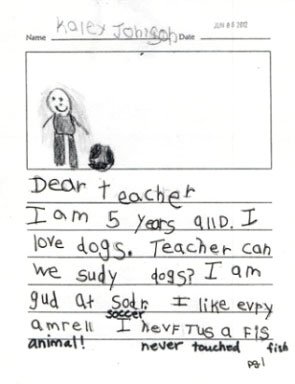 Name Kaley Johgoh Date JUN 05 2012
Dear teacher
I am 5 years alld. I
love dogs. Teacher can
we sudy dogs? I am
gud at sodr. I like evry
soccer
amrell I hevF TUG a FIS
animal! never touched fish
pg1